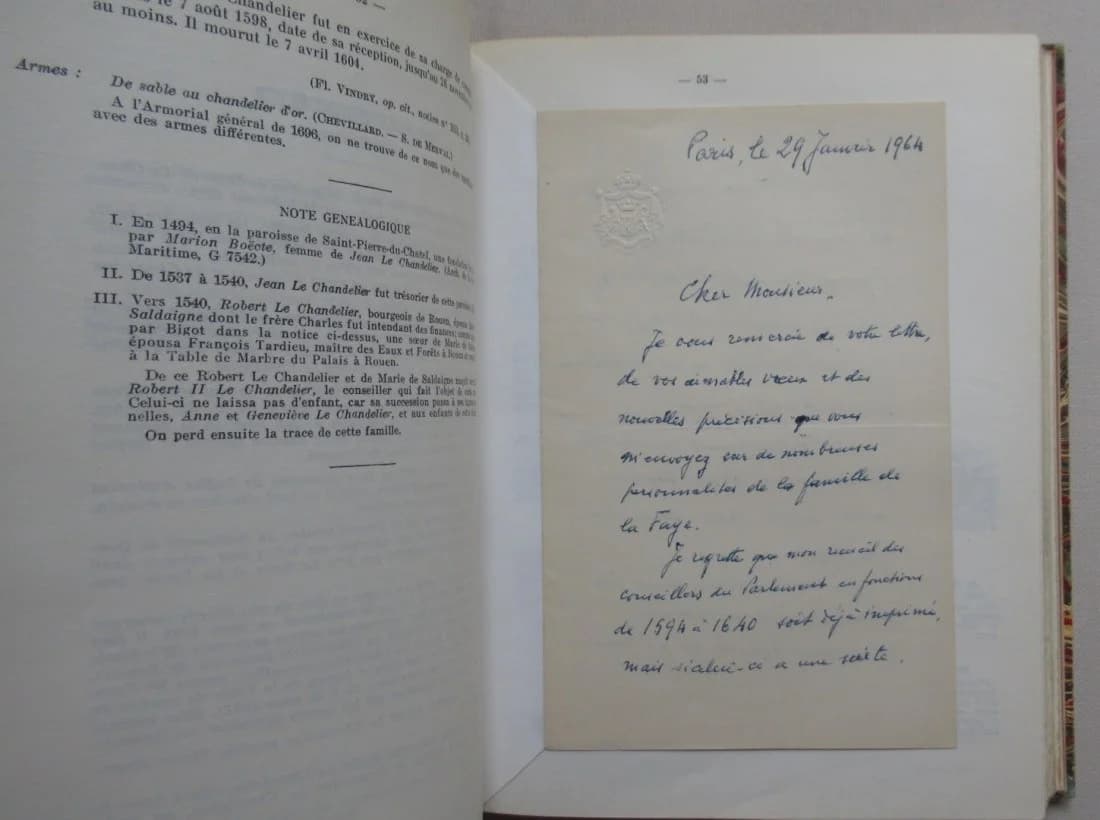 — 52 —
Chandelier fut en exercice de sa charge de
le 7 août 1598, date de sa réception, jusqu'au 26
au moins. Il mourut le 7 avril 1604.
(Fl. VINDRY, op. cit., notice n°
Armes :
De sable au chandelier d'or. (CHEVILLARD. — S. DE MERVAL.)
A l'Armorial général de 1696, on ne trouve de ce nom que des
avec des armes différentes.
NOTE GENEALOGIQUE
I. En 1494, en la paroisse de Saint-Pierre-du-Chatel, une
par Marion Boëcte, femme de Jean Le Chandelier. (Arch. de la
Maritime, G 7542.)
II. De 1537 à 1540, Jean Le Chandelier fut trésorier de cette
III. Vers 1540, Robert Le Chandelier, bourgeois de Rouen,
Saldaigne dont le frère Charles fut intendant des finances;
par Bigot dans la notice ci-dessus, une sœur de Marie de
épousa François Tardieu, maître des Eaux et Forêts à Rouen
à la Table de Marbre du Palais à Rouen.
De ce Robert Le Chandelier et de Marie de Saldaigne
Robert II Le Chandelier, le conseiller qui fait l'objet de
Celui-ci ne laissa pas d'enfant, car sa succession passa à ses
nelles, Anne et Geneviève Le Chandelier, et aux enfants de
On perd ensuite la trace de cette famille.
— 53 —
Paris, le 29 Janvier 1964
Cher Monsieur,
Je vous remercie de votre lettre,
de vos aimables vœux et des
nouvelles précisions que vous
m'envoyez sur de nombreuses
personnalités de la famille de
la Faye.
Je regrette que mon recueil des
conseillers du Parlement en fonctions
de 1594 à 1640 soit déjà imprimé,
mais si celui-ci a une suite,